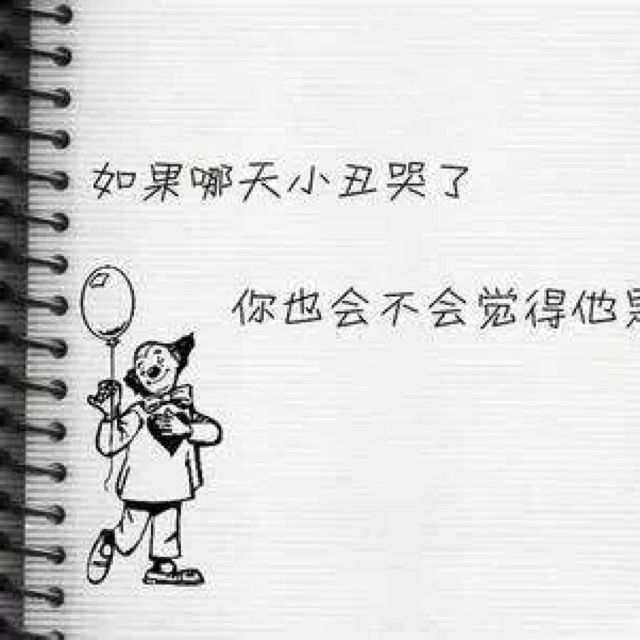 如果哪天小丑哭了
你也会不会觉得他